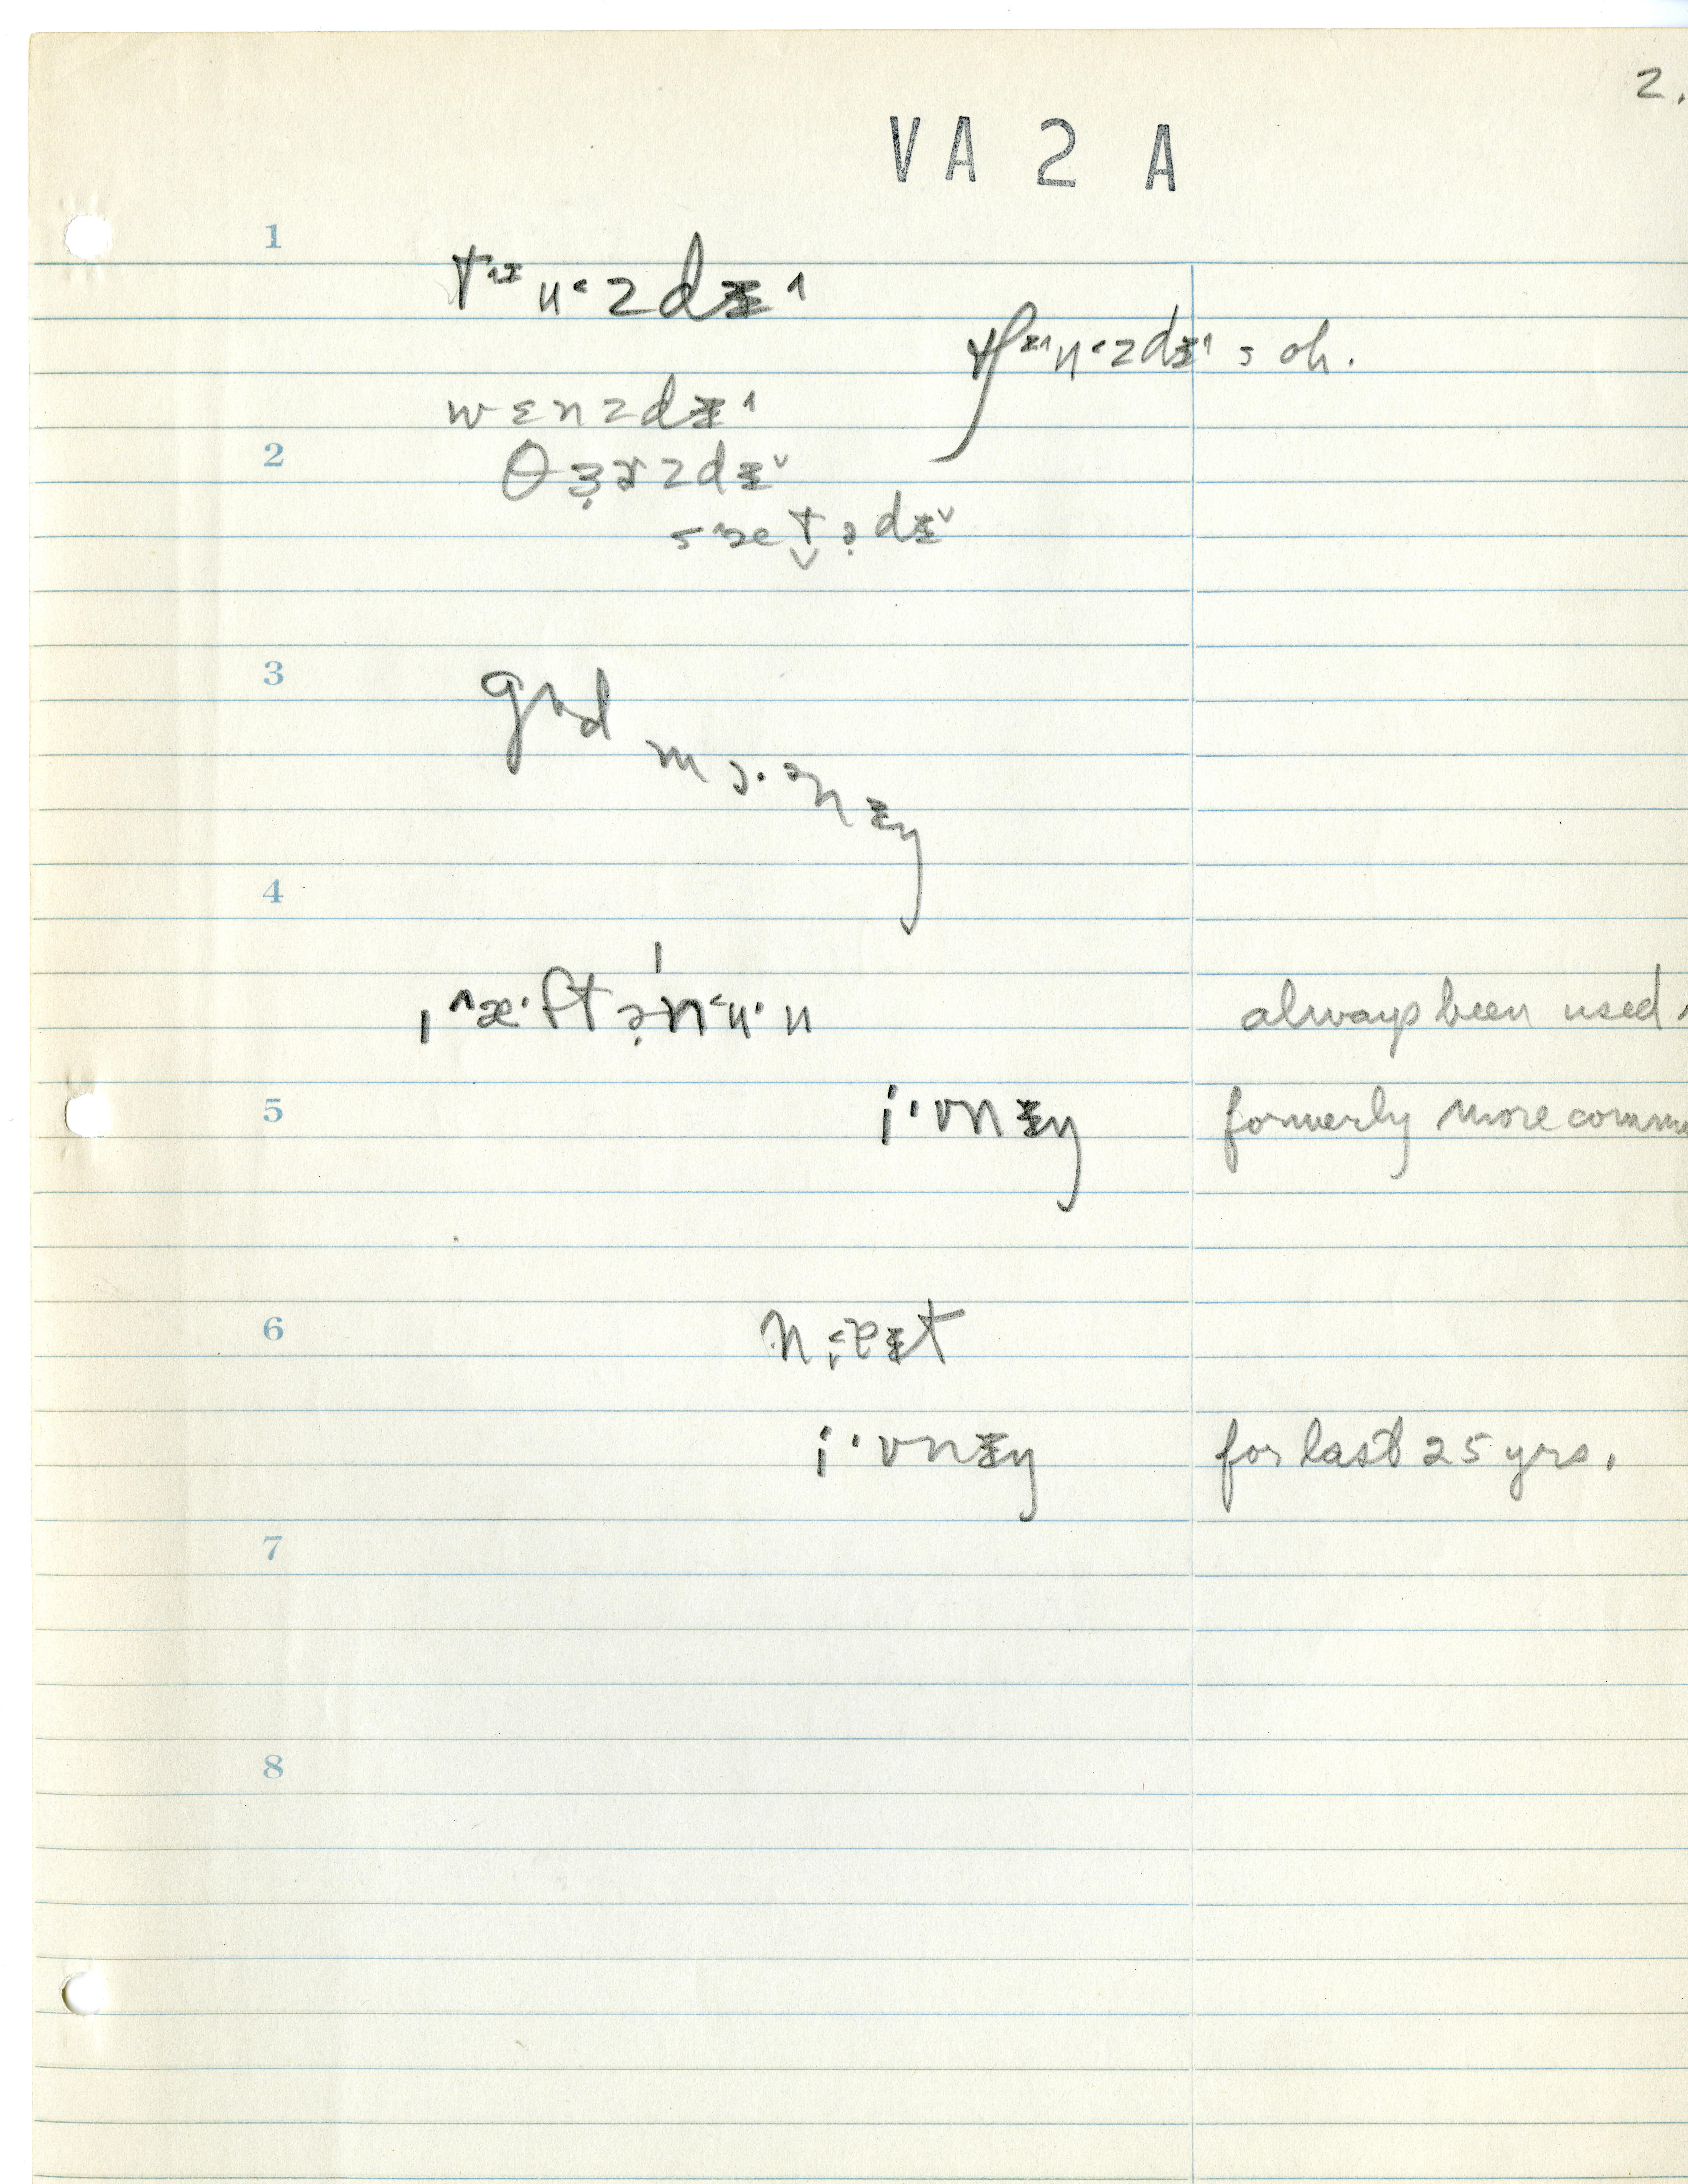 2.
VA 2 A
1
tᶦᵻʉ˂zdᵻ˄
tʃᵻ˄ʉ˂zdᵻ˄ = oh.
wɛnzdᵻ˄
2
θɜ̣ɚzdᵻ˅
s˄æt̬ə̣dᵻ˅
3
gʊd mɔ·ənᵻŋ
4
ˌ˄æ·ftə̣ˈn˂ʉ·ʉ
always been used.
5
i·vnᵻŋ
formerly more comm
6
n˂ɐᵻt
i·vnᵻŋ
for last 25 yrs.
7
8